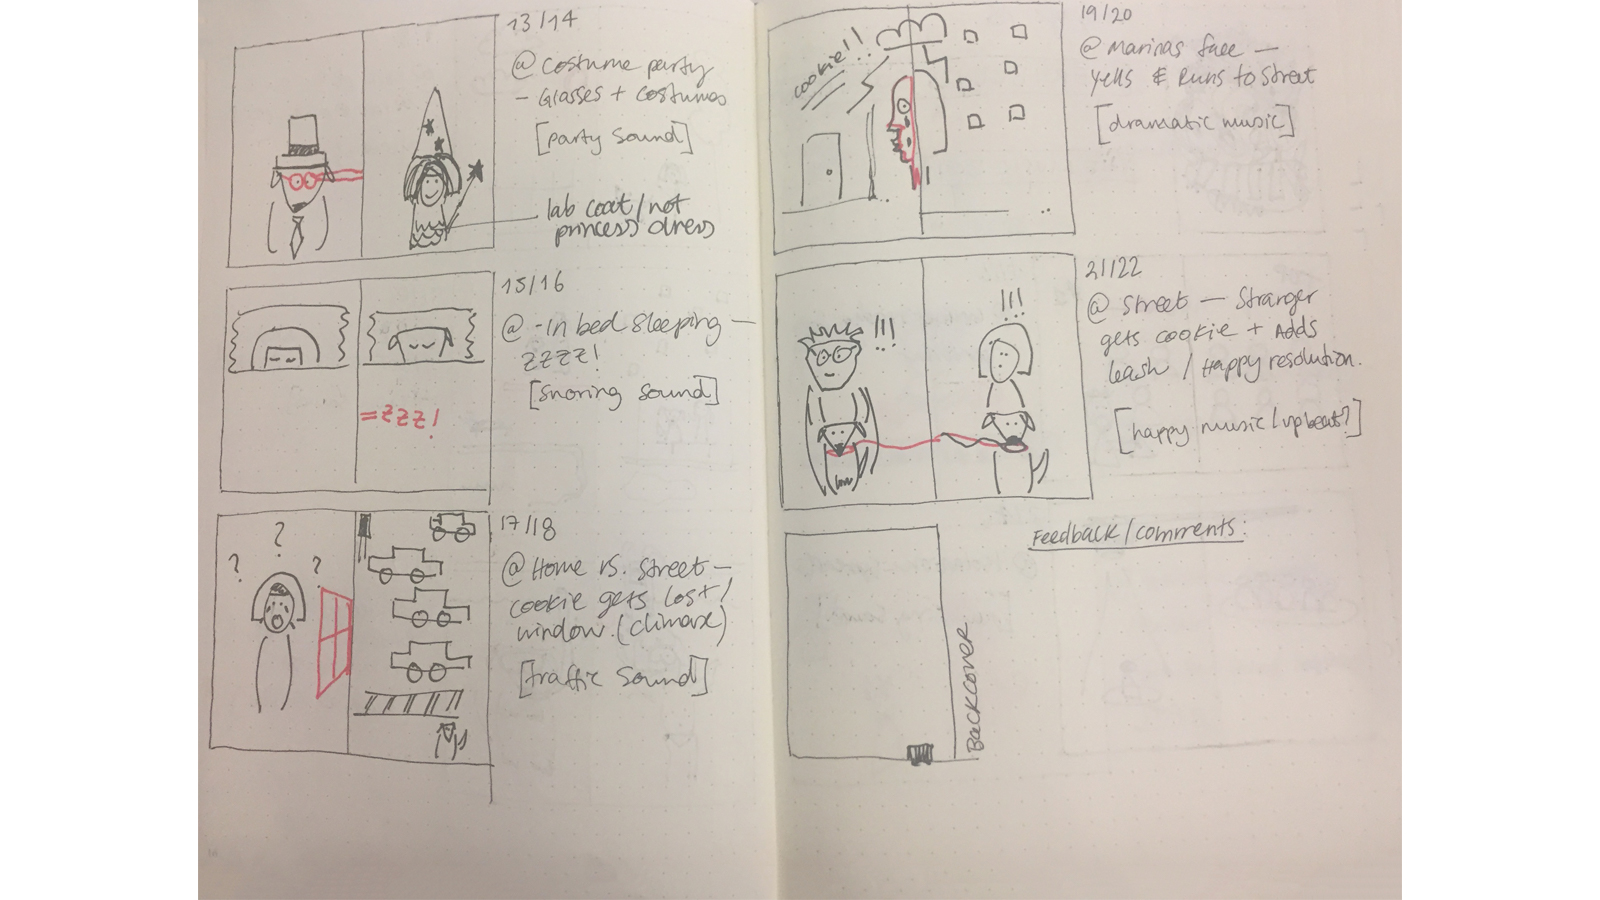 13/14
@ costume party
– Glasses + costumes
[party sound]
lab coat/not
princess dress
15/16
@ - In bed sleeping —
zzzz!
[snoring sound]
=zzz!
17/18
@ Home vs. street –
cookie gets lost/
window. (climax)
[traffic sound]
? ? ?
19/20
@ Marinas face —
yells & Runs to street
[dramatic music]
cookie!!
21/22
@ street — Stranger
gets cookie + Adds
leash / Happy resolution.
[happy music/upbeat?]
!!!
!!!
Feedback/comments:
Backcover